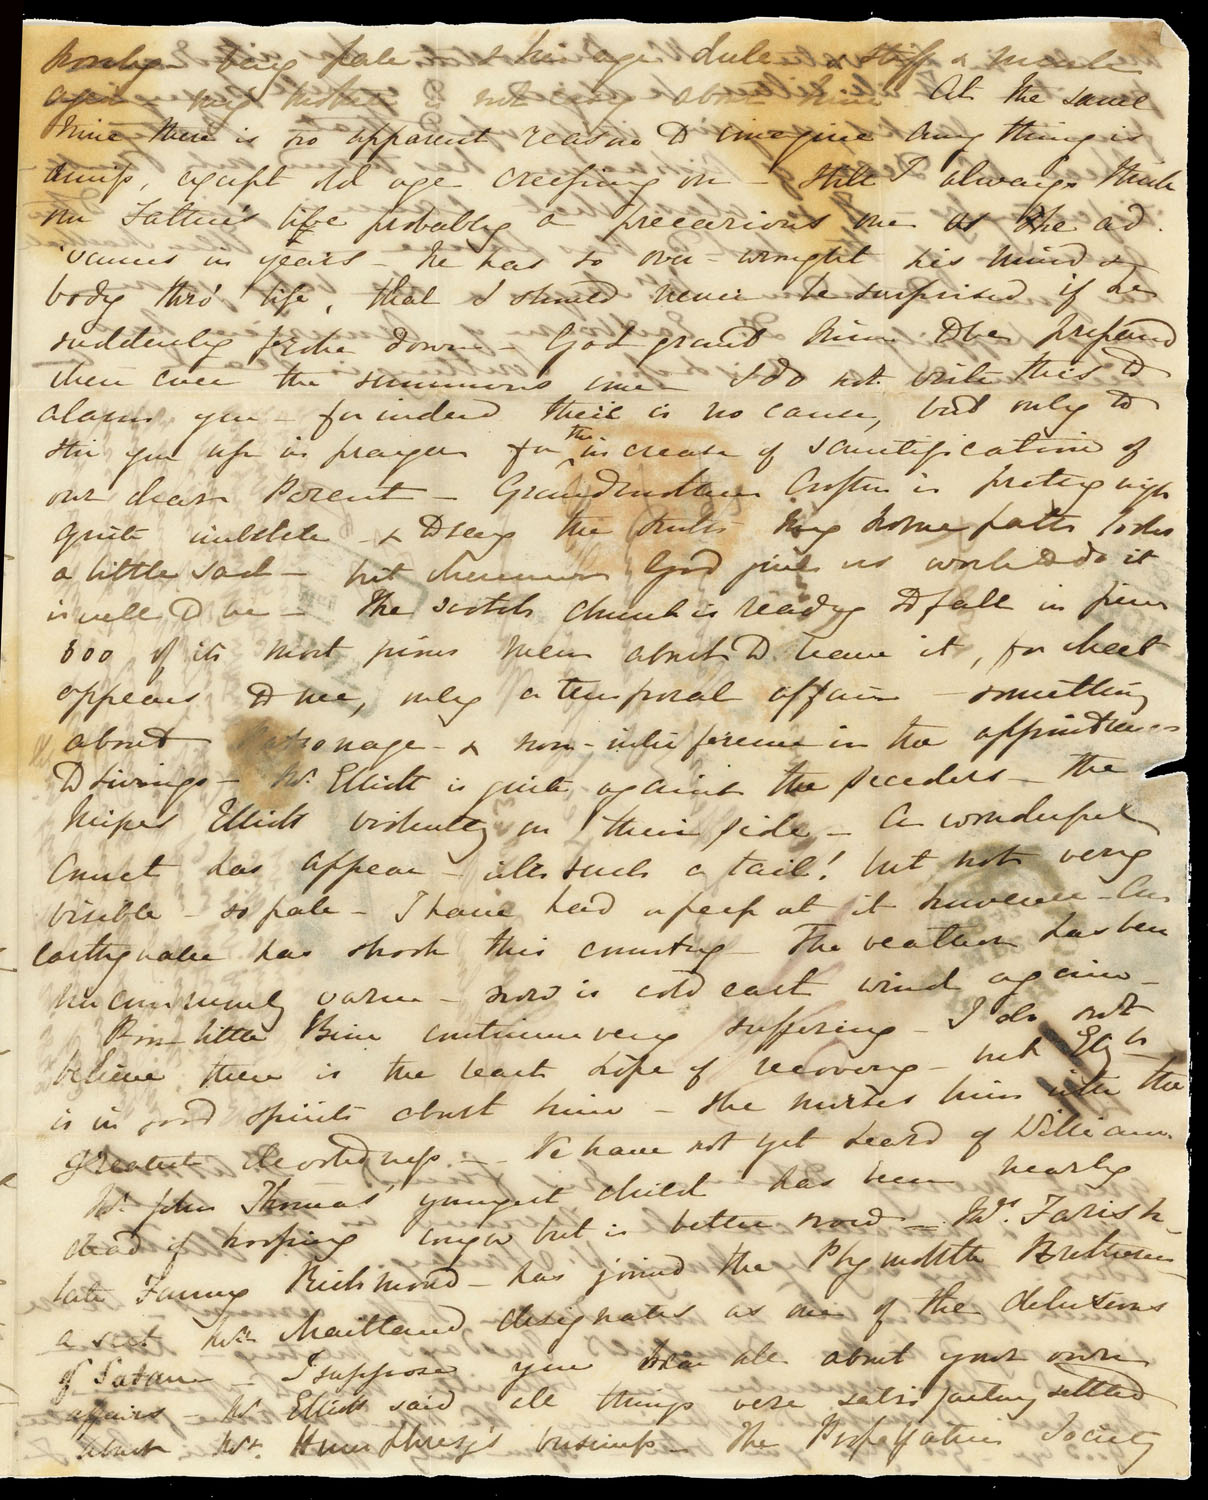 being pale & his age dull & stiff &
my mother not easy about him At the same
time there is no apparent reason to imagine any thing is
amiss, except old age creeping on - still I always think
my Father's life probably a precarious one as he ad-
vances in years - he has so over-wrought his mind &
body thro' life, that I should never be surprised if he
suddenly broke down - God grant him to be prepared
when ever the summons comes I do not write this to
alarm you - for indeed there is no cause, but only to
stir you up in prayer for the increase of sanctification of
our dear Parent - Grandmother Crofton is pretty nigh
quite imbecile - & to say the truth my home path looks
a little sad - but whenever God gives us work to do it
is well to be - The Scotch Church is ready to fall in pieces
600 of its most pious men about to leave it, for what
appears to me, only a temporal affair - something
about Patronage - & non-interference in the appointments
to livings - Mr. Elliott is quite against the seceders - the
Misses Elliott violently on their side - A wonderful
Comet has appear - with such a tail! but not very
visible - so pale - I have had a peep at it however - An
earthquake has shook this country - The weather has been
uncommonly warm - now is cold east wind again -
Poor little Bine continues very suffering - I do not
believe there is the least hope of recovery - but Eliz th
is in good spirits about him - she nurses him with the
greatest devotedness. - We have not yet heard of William.
Mr. John Thomas' youngest child has been nearly
dead of hooping cough but is better now - Mrs. Farish -
late Fanny Richmond - has joined the Plymouth Brethren
a sect Mr. Maitland designates as one of the delusions
of Satan - I suppose you hear all about your own
affairs - Mr. Elliott said all things were satisfactory settled
about Mr. Humphrey's business - The Propagation Society